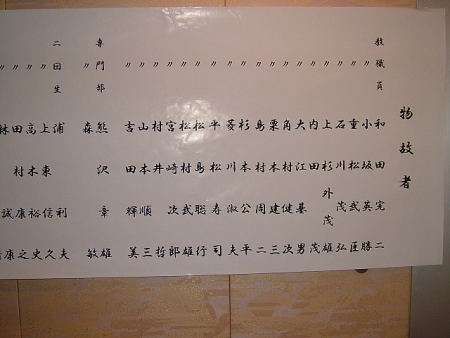 物故者
教職員 和田完二
〃 小坂英勝
〃 重松武匡
〃 石川茂弘
〃 上杉外茂雄
〃 内田茂
〃 大江基男
〃 角村健次
〃 粟本建三
〃 島村周二
〃 杉本公平
〃 菱川淑夫
〃 平松寿司
〃 松島聡行
〃 松村武雄
〃 宮崎次郎
〃 村井哲
〃 山本順三
〃 吉田輝美
専門部 熊沢章雄
〃 森敏
二回生 浦利夫
〃 上東信久
〃 高木裕史
〃 田村康之
〃 林誠康